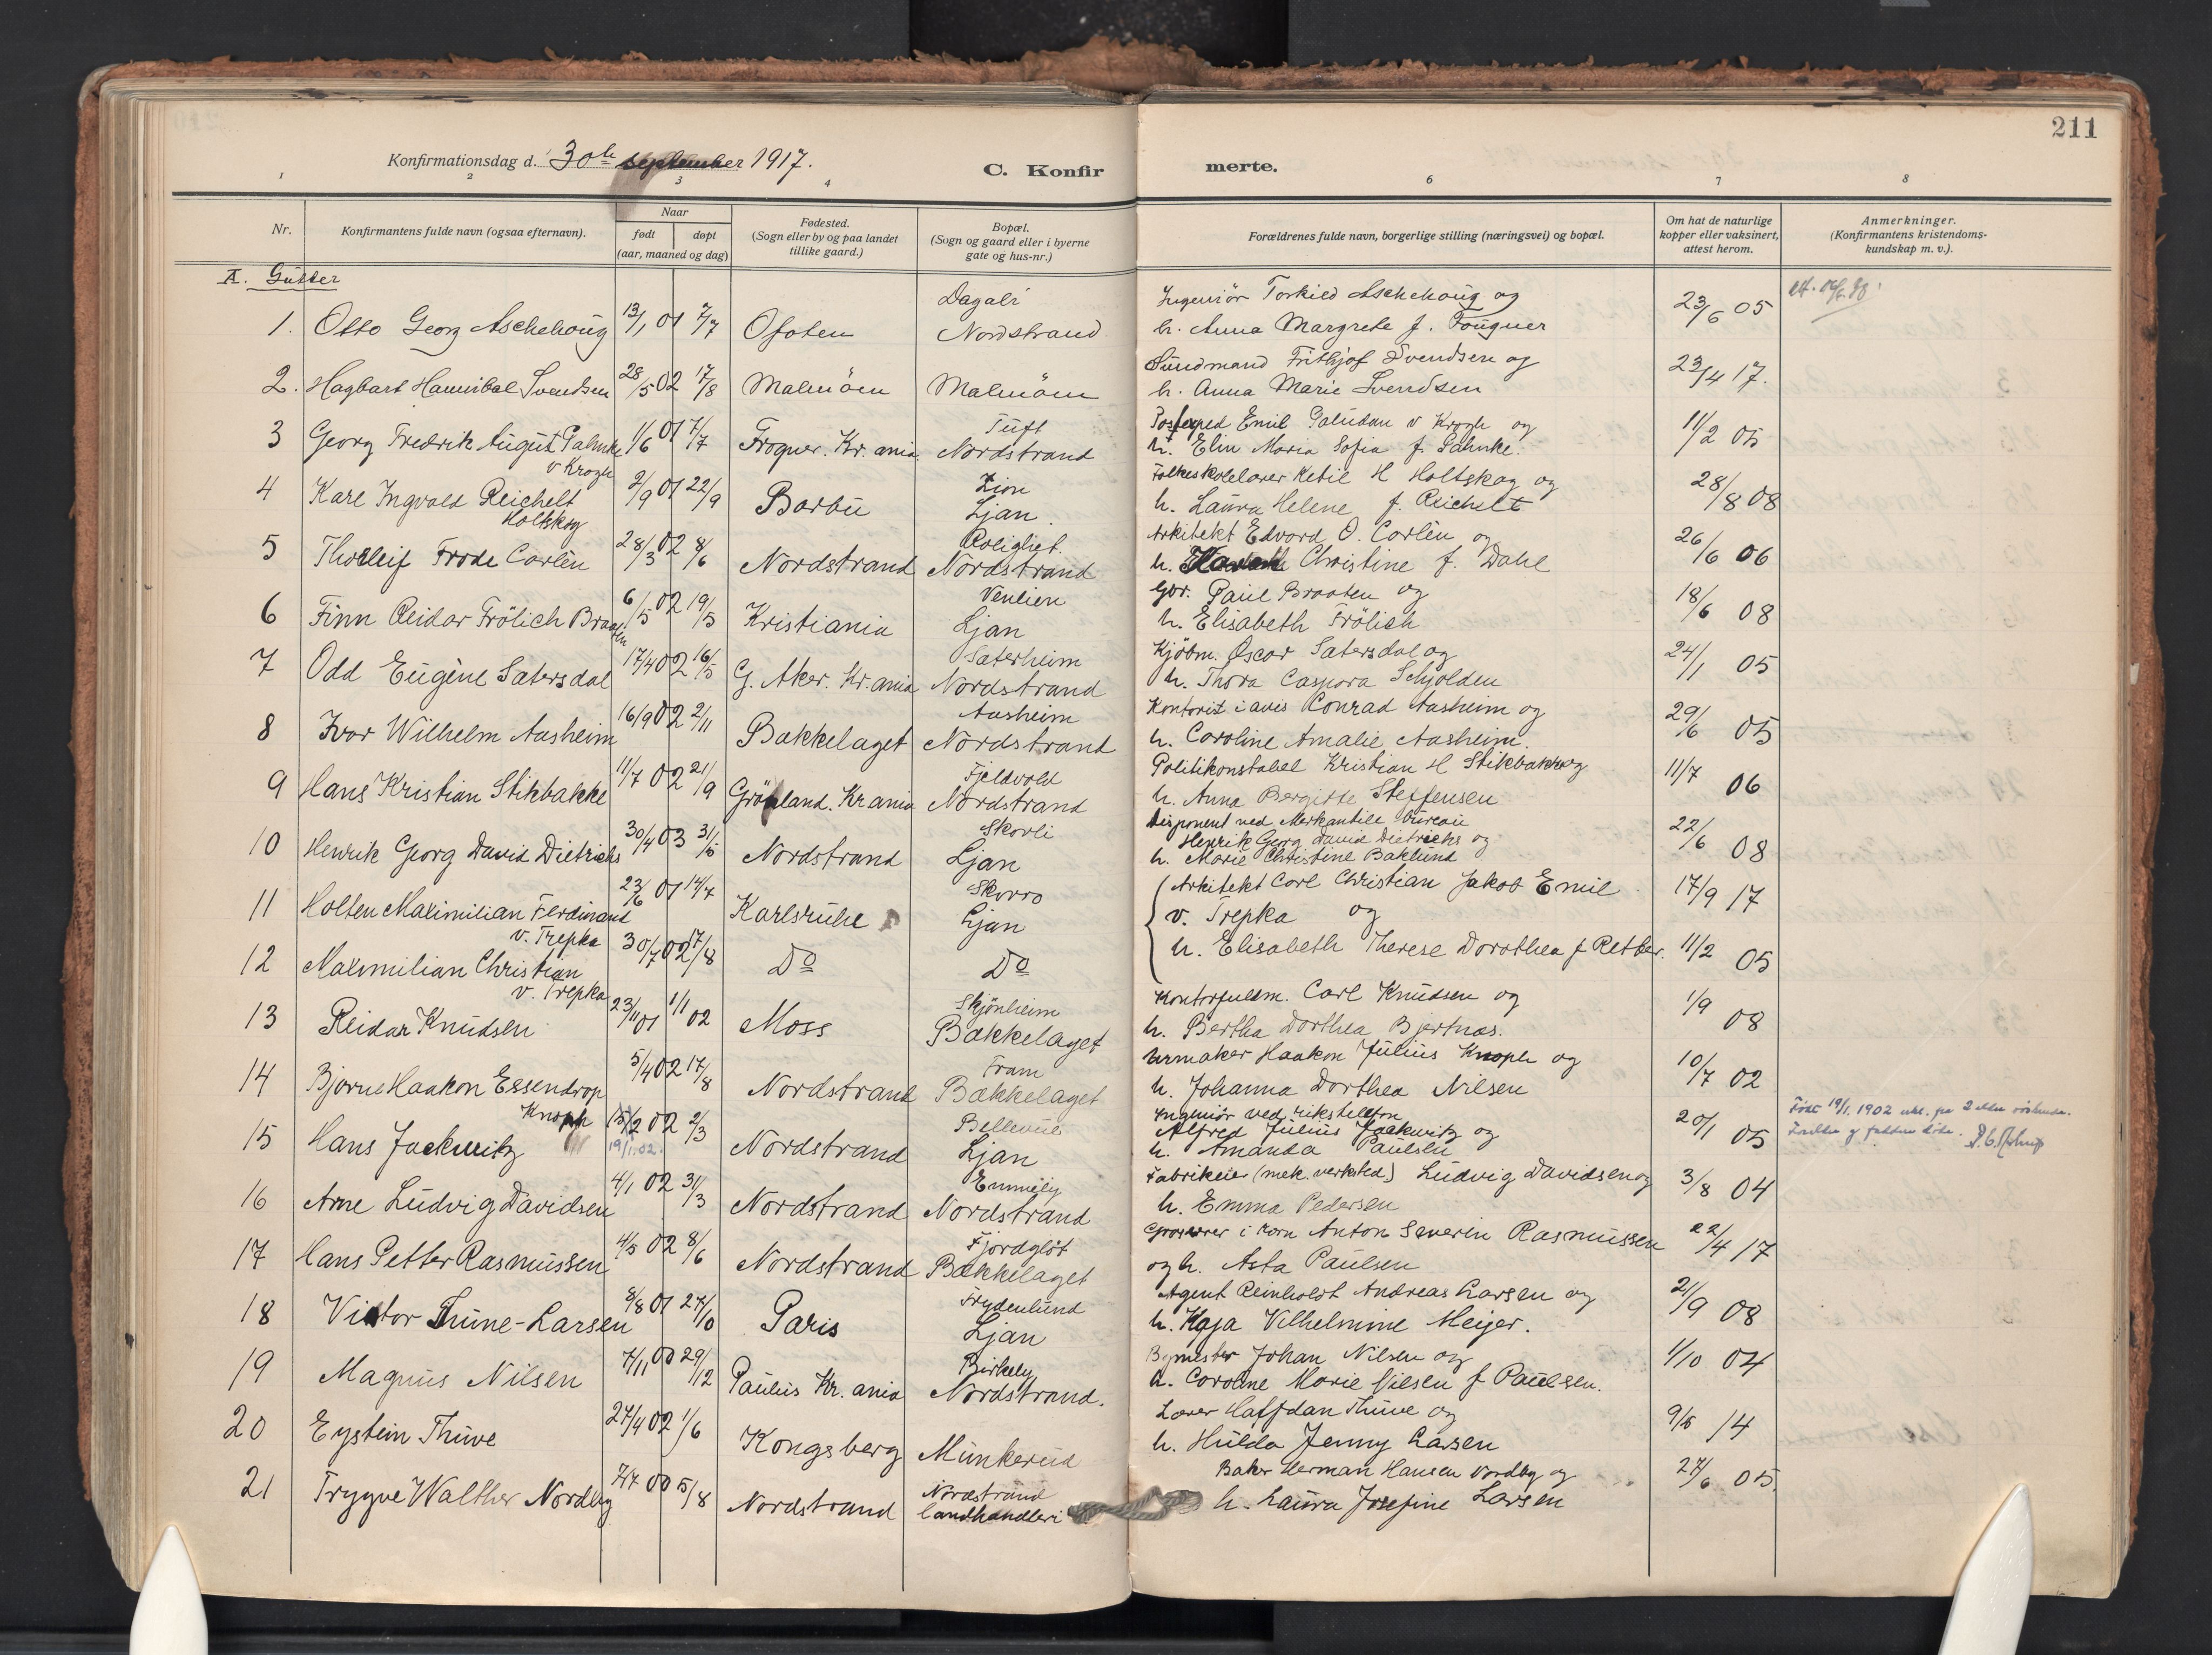 211
Konfirmationsdag d. 30te september 1917.
C. Konfir merte.
1 2 3 4 6 7 8
Nr.
Konfirmantens fulde navn (ogsaa efternavn).
Naar
født døpt
(aar, maaned og dag)
Fødested.
(Sogn eller by og paa landet
tillike gaard.)
Bopæl.
(Sogn og gaard eller i byerne
gate og hus-nr.)
Forældrenes fulde navn, borgerlige stilling (næringsvei) og bopæl.
Om hat de naturlige
kopper eller vaksinert,
attest herom.
Anmerkninger.
(Konfirmantens kristendoms-
kundskap m. v.).
A. Gutter
1. Otto Georg Aschehoug 13/1 01 7/7 Ofoten Dagali Nordstrand
Ingeniør Torkild Aschehoug og
h. Anna Margrete f. Fougner 23/6 05
2. Hagbart Hannibal Svendsen 28/5 02 17/8 Malmöen Malmöen
Sundmand Frithjof Svendsen og
h. Anna Marie Svendsen 23/4 17.
3 Georg Fredrik August Pahnke v Krogh 1/6 01 7/7 Frogner. Kr. ania. Tuft Nordstrand
Postexped Emil Paludan v Krogh og
h. Elin Maria Sofia f. Pahnke. 11/2 05
4 Karl Ingvald Reichelt Holtskog 2/9 01 22/9 Barbu Zion Ljan.
Folkeskolelærer Ketil H Holtskog og
h. Laura Helene f. Reichelt 28/8 08
5 Thorleif Frode Carlèn 28/3 02 8/6 Nordstrand Rolighet. Nordstrand
Arkitekt Edvard O. Carlèn og
h. Christine f. Dahl 26/6 06
6 Finn Reidar Frölich Braaten 6/5 02 19/5 Kristiania Venlien Ljan
Gbr. Paul Braaten og
h. Elisabeth Frölich 18/6 08
7 Odd Eugène Sætersdal 17/4 02 16/5 G. Aker. Kr. ania Sæterheim Nordstrand
Kjöbm. Oscar Sætersdal og
h. Thora Caspara Schjolden 24/1 05
8 Ivar Wilhelm Aasheim 16/9 02 2/11 Bækkelaget Aasheim Nordstrand
Kontorist i avis Konrad Aasheim og
h. Caroline Amalie Aasheim. 29/6 05
9 Hans Kristian Stikbakke 11/7 02 21/9 Grönland. Kr ania Fjeldvold Nordstrand
Politikonstabel Kristian H Stikbakke og
h. Anna Bergitte Steffensen 11/7 06
10 Henrik Georg David Dietrichs 30/4 03 31/5 Nordstrand Skovli Ljan
Disponent ved Merkantile bureau
Henrik Georg David Dietrichs og
h. Marie Christine Baklund 22/6 08
11 Holten Maximilian Ferdinand v. Trepka 23/6 01 14/7 Karlsruhe Skovro Ljan
Arkitekt Carl Christian Jakob Emil
v. Trepka og 17/9 17
12 Maximilian Christian v. Trepka 30/7 02 17/8 Do Do
h. Elisabeth Therese Dorothea f Retter. 11/2 05
13 Reidar Knudsen 23/11 01 1/1 02 Moss Skjönheim Bækkelaget
Kontorfuldm. Carl Knudsen og
h. Bertha Dorthea Bjertnæs. 1/9 08
14 Bjarne Haakon Essendrop Knoph 5/4 02 17/8 Nordstrand Fram Bækkelaget
Urmaker Haakon Julius Knoph og
h. Johanna Dorthea Nilsen 10/7 02
15 Hans Jackwitz 15/2 02 19/1.02. 2/3 Nordstrand Bellevue Ljan
Ingeniör ved rikstelefon
Alfred Julius Jackwitz og
h. Amanda Paulsen 20/1 05
Född 19/1. 1902
16 Arne Ludvig Davidsen 4/1 02 31/3 Nordstrand Emmely Nordstrand
Fabrikeier (mek. verksted) Ludvig Davidsen og
h. Emma Pedersen 3/8 04
17 Hans Petter Rasmussen 4/5 02 8/6 Nordstrand Fjordglöt Bækkelaget
Grosserer i korn Anton Severin Rasmussen
og h. Asta Paulsen 22/4 17
18 Victor Thune-Larsen 8/8 01 27/10 Paris Frydenlund Ljan
Agent Reinholdt Andreas Larsen og
h. Kaja Vilhelmine Meijer. 21/9 08
19 Magnus Nilsen 7/11 00 29/12 Paulus Kr. ania Birkely Nordstrand.
Bymester Johan Nilsen og
h. Caroline Marie Nilsen f Paulsen. 1/10 04
20 Eystein Thuve 27/4 02 1/6 Kongsberg Munkerud
Lærer Halfdan Thuve og
h. Hulda Jenny Larsen 9/5 14
21 Trygve Walther Nordby 7/7 00 5/8 Nordstrand Nordstrand landhandleri
Baker Herman Hansen Nordby og
h. Laura Josefine Larsen 27/6 05.